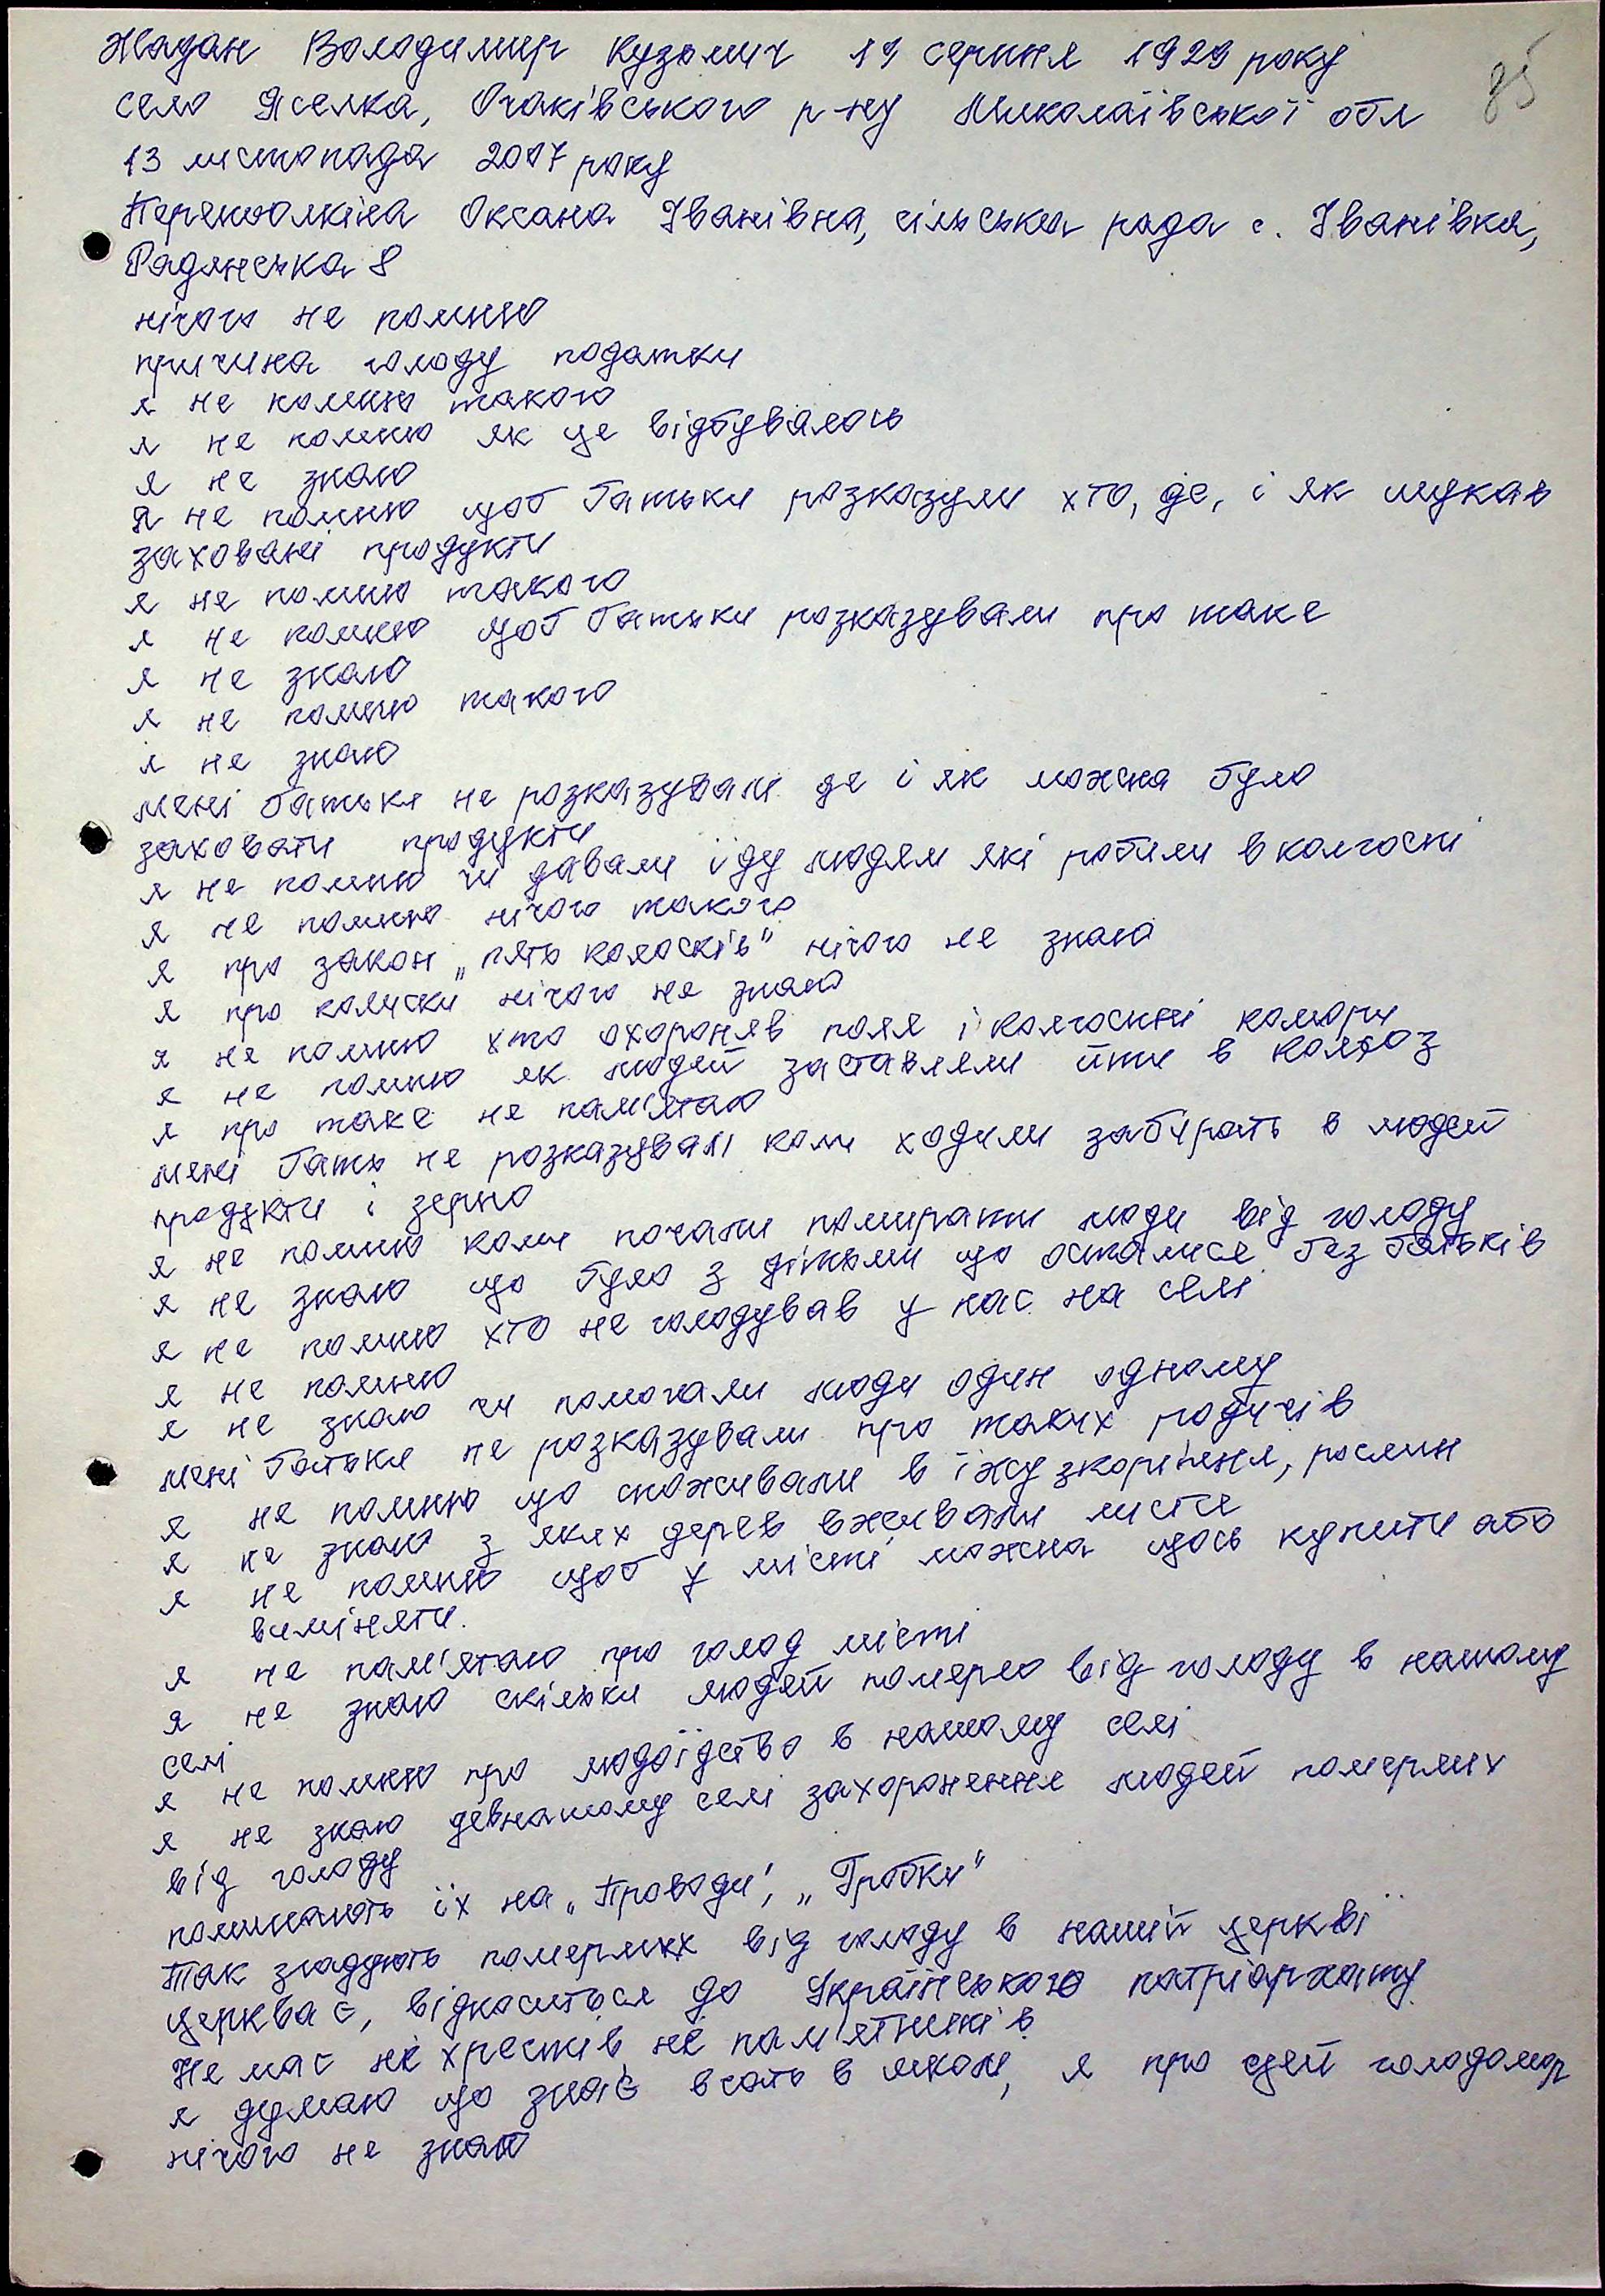 Жадан Володимир Кузьмич 19 серпня 1929 року
85
село Яселка, Очаківського р-ну Миколаївської обл
13 листопада 2007 року
Оксана Іванівна, сільська рада с. Іванівка,
Радянська 8
нічого не помню
причина голоду податки
я не помню такого
я не помню як це відбувалось
я не знаю
Я не помню щоб батьки розказули хто, де, і як шукав
заховані продукти
я не помню такого
я не помню щоб батьки розказували про таке
я не знаю
я не помню такого
я не знаю
мені батьки не розказували де і як можна було
заховати продукти
я не помню чи давали їду людям які робили в колгоспі
я не помню нічого такого
я про закон „пять колосків" нічого не знаю
я про колиски нічого не знаю
я не помню хто охороняв поля і колгоспні комори
я не помню як людей заставляли йти в колгоз
я про таке не пам'ятаю
мені бать не розказували коли ходили забірать в людей
продукти і зерно
я не помню коли почали помирати люди від голоду
я не знаю що було з дітьми що осталися без батьків
я не помню хто не голодував у нас на селі
я не помню
я не знаю чи помогали люди один одному
мені батьки не розказували про таких родичів
я не помню що споживали в їжу зкоріння, рослин
я не знаю з яких дерев вживали листя
я не помню щоб у місті можна щось купити або
виміняти.
я не пам'ятаю про голод місті
я не знаю скільки людей померло від голоду в нашому
селі
я не помню про людоїдство в нашому селі
я не знаю девнашому селі захоронення людей померлих
від голоду
поминають їх на „Проводи", „Гробки"
Так згадують померлих від голоду в нашій церкві
церква є, відноситься до Українського патріархату
Не має не хрестів не пам'ятників
я думаю що знає всоть в школі, я про цей голодомор
нічого не знаю